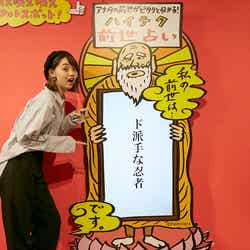 アナタの前世がピタリと分かる!
ハイテク
前世占い
私の
前世は
ド派手な忍者
です。